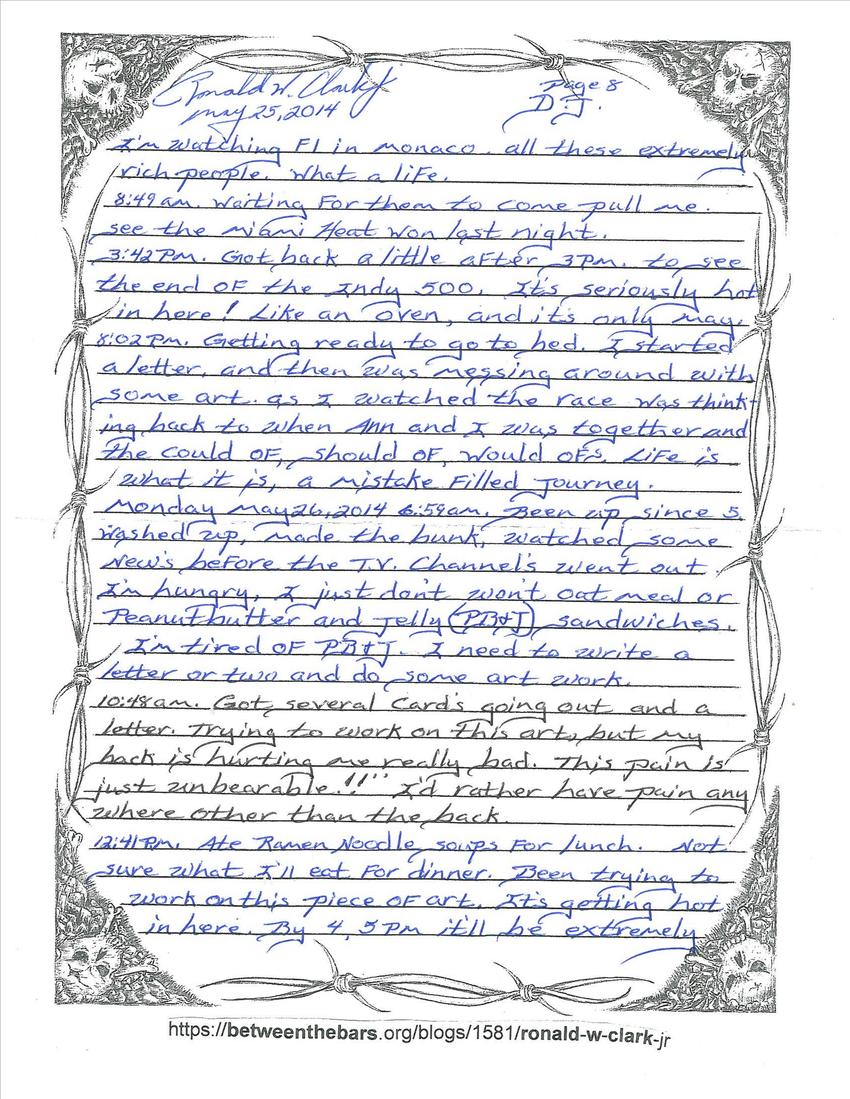 Ronald W. Clark Jr
May 25, 2014
Page 8
D.J.
I'm watching F1 in monaco. all these extremely
rich people. What a life.
8:49 am. Waiting For them to come pull me.
see the miami Heat won last night.
3:42 Pm. Got back a little after 3pm. to see
the end of the Indy 500. It's seriously hot
in here! Like an oven, and it's only may.
8:02 Pm. Getting ready to go to bed. I started
a letter, and then was messing around with
some art. as I watched the race was think-
ing back to when Ann and I was together and
the could of, should of, would of's. Life is
what it is, a mistake Filled journey.
Monday May 26, 2014 6:59am. Been up since 5.
Washed up, made the bunk, watched some
New's before the T.V. Channel's went out
I'm hungry, I just don't won't oat meal or
Peanut butter and jelly (PB&J) sandwiches.
I'm tired of PB&J. I need to write a
letter or two and do some art work.
10:48am. Got several Card's going out and a
letter. Trying to work on this art, but my
back is hurting me really bad. This pain is
just unbearable!!! I'd rather have pain any
where other than the back.
12:41 Pm. Ate Ramen Noodle soups For lunch. Not
sure what I'll eat For dinner. Been trying to
work on this piece of art. It's getting hot
in here. By 4, 5 Pm it'll be extremely
https://betweenthebars.org/blogs/1581/ronald-w-clark-jr